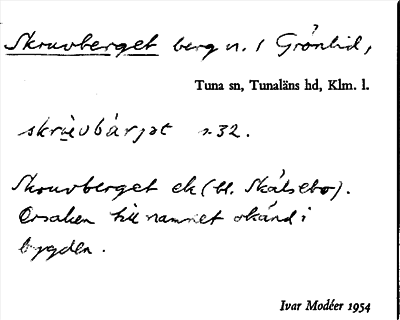 Skruvberget berg n. / Grönlid,
Tuna sn, Tunaläns hd, Klm. l.
s. 32.
Skruvberget ek (bl. Skälsebo).
Orsaken till namnet okänd i
bygden.
Ivar Modéer 1954